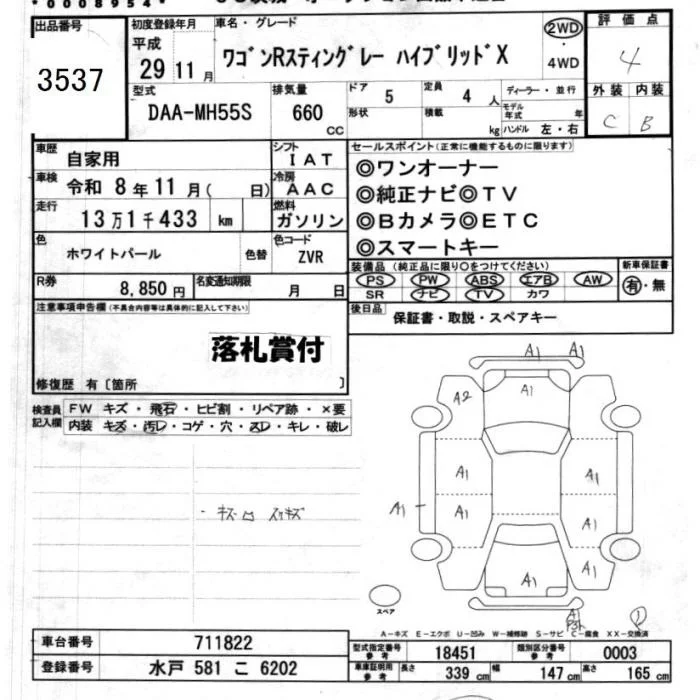 *00008954*
出品番号
3537
初度登録年月
平成
29年 11月
車名・グレード
ワゴンRスティングレー ハイブリッドX
2WD
・
4WD
評価点
4
外装 内装
C B
型式
DAA-MH55S
排気量
660
CC
ドア
5
形状
定員
4人
積載
kg
ディーラー・並行
モデル年式 年
ハンドル 左・右
車歴 自家用
車検 令和 8年 11月( 日)
走行 13万1千433 km
シフト
IAT
冷房
AAC
燃料
ガソリン
セールスポイント(正常に機能するものに限ります)
◎ワンオーナー
◎純正ナビ◎TV
◎Bカメラ◎ETC
◎スマートキー
色
ホワイトパール
色替
色コード
ZVR
R券
8,850円
名変通知期限
月 日
装備品(純正品に限り○をつけてください)
PS PW ABS エアB AW
SR ナビ TV カワ
新車保証書
有・無
後日品
保証書・取説・スペアキー
注意事項申告欄(不具合内容等は具体的に記入して下さい)
落札賞付
修復歴 有〔箇所 〕
検査員記入欄
FW キズ・飛石・ヒビ割・リペア跡・×要
内装 キズ・汚レ・コゲ・穴・スレ・キレ・破レ
A1 A1
A2 A1
A1 A1
A1 A1 A1
A1 A1 A1
A1
スペア
A-キズ E-エクボ U-凹み W-補修跡 S-サビ C-腐食 XX-交換済
車台番号 711822
登録番号 水戸 581 こ 6202
型式指定番号
参考
18451
類別区分番号
参考
0003
車庫証明用
参考
長さ 339 cm 幅 147 cm 高さ 165 cm